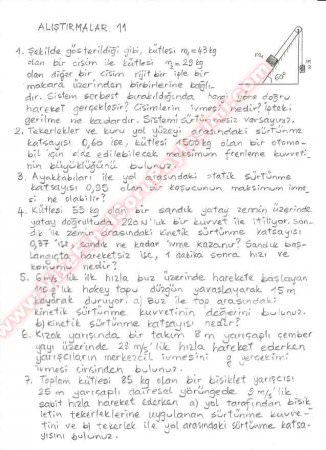 ALIŞTIRMALAR 11
1. Şekilde gösterildiği gibi, kütlesi m₁=43 kg
olan bir cisim ile kütlesi m₂=29 kg
olan diğer bir cisim rijit bir iple bir
makara üzerinden birbirlerine bağlı-
dır. Sistem serbest bırakıldığında hangi yöne doğru
hareket gerçekleşir? Cisimlerin ivmesi nedir? İpteki
gerilme ne kadardır. Sistemi sürtünmesiz varsayınız.
m₁
m₂
60°
2. Tekerlekler ve kuru yol yüzeyi arasındaki sürtünme
katsayısı 0,60 ise, kütlesi 1500 kg olan bir otomo-
bil için elde edilebilecek maksimum frenleme kuvveti-
nin büyüklüğünü bulunuz?
3. Ayakkabıları ile yol arasındaki statik sürtünme
katsayısı 0,95 olan bir koşucunun maksimum ivme
si ne olabilir?
4. Kütlesi 55 kg olan bir sandık yatay zemin üzerinde
yatay doğrultuda 220 N'luk bir kuvvet ile itiliyor. San-
dık ile zemin arasındaki kinetik sürtünme katsayısı
0,37 ise, sandık ne kadar ivme kazanır? Sandık baş-
langıçta hareketsiz ise, 1 dakika sonra hızı ve
konumu nedir?
5. 6 m/s lik ilk hızla buz üzerinde harekete başlayan
lik hokey topu düzgün yavaşlayarak 15 m
kayarak duruyor. a) Buz ile top arasındaki
kinetik sürtünme kuvvetinin değerini bulunuz.
b) kinetik sürtünme katsayısı nedir?
6. Kızak yarışında bir takım 8 m yarıçaplı çember
yayı üzerinde 23 m/s lik hızla hareket ederken
yarışçıların merkezcil ivmesini g yerçekimi
ivmesi cinsinden bulunuz.
7. Toplam kütlesi 85 kg olan bir bisiklet yarışçısı
25 m yarıçaplı dairesel yörüngede 9 m/s lik
sabit hızla hareket ederken a) yol tarafından bisik
letin tekerleklerine uygulanan sürtünme kuvve-
tini ve b) tekerlek ile yol arasındaki sürtünme katsa-
yısını bulunuz.